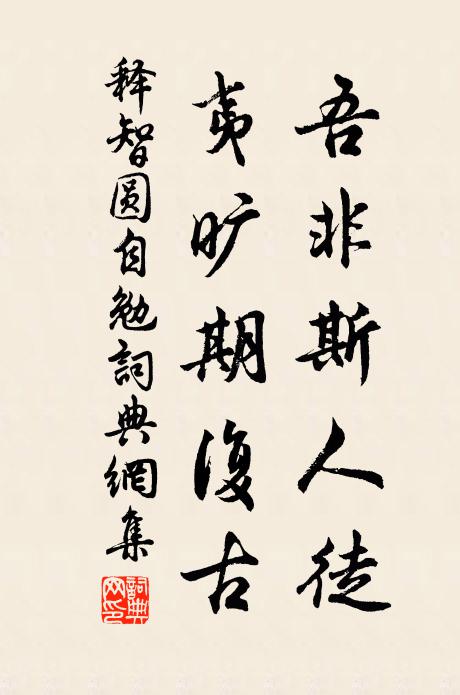 吾非斯人徒
夷旷期復古
释智圆自勉詞典網集
詞典网印